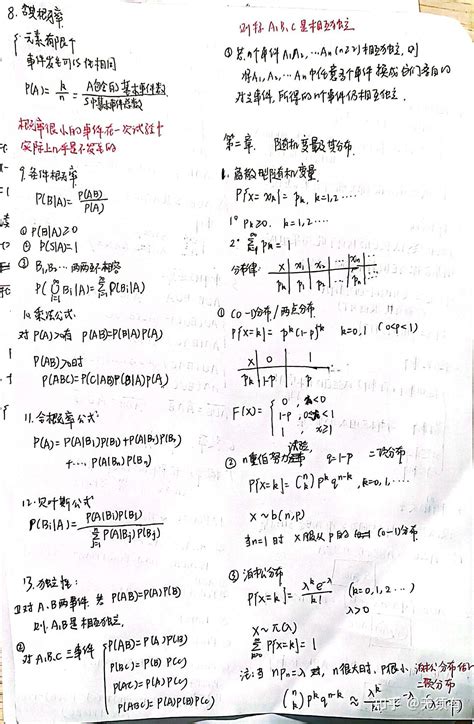 8. 古典概率
元素有限个
事件发生可能性相同
P(A) = k/n = A包含的基本事件数/S中基本事件总数
概率很小的事件在一次试验中
实际上几乎是不发生的
9. 条件概率
P(B|A) = P(AB)/P(A)
① P(B|A) ≥ 0
② P(S|A) = 1
③ B₁, B₂ ⋯ 两两互不相容
P(⋃ Bᵢ|A) = Σ P(Bᵢ|A)
10. 乘法公式
对 P(A)>0 有 P(AB)=P(B|A)P(A)
P(AB)>0时
P(ABC)=P(C|AB)P(B|A)P(A)
11. 全概率公式
P(A) = P(A|B₁)P(B₁)+P(A|B₂)P(B₂)
+⋯+P(A|Bₙ)P(Bₙ)
12. 贝叶斯公式
P(Bᵢ|A) = P(A|Bᵢ)P(Bᵢ)/Σ P(A|Bⱼ)P(Bⱼ)
13. 独立性:
① 对A、B两事件 若 P(AB)=P(A)P(B)
则 A,B是相互独立
② 对A,B,C三事件
P(AB)=P(A)P(B)
P(BC)=P(B)P(C)
P(AC)=P(A)P(C)
P(ABC)=P(A)P(B)P(C)
则称A,B,C是相互独立
③ 若n个事件A₁,A₂,⋯Aₙ(n≥2)相互独立, 则
将A₁,A₂,⋯Aₙ中任意多个事件换成它们各自的
对立事件, 所得的n个事件仍相互独立.
第二章. 随机变量及其分布
1. 离散型随机变量
P{X=xₖ} = pₖ, k=1,2⋯
1° pₖ≥0. k=1,2⋯
2° Σ pₖ=1
分布律: X x₁ x₂ ⋯ xₙ ⋯
pₖ p₁ p₂ ⋯ pₙ ⋯
① (0-1)分布/两点分布
P{X=k} = pᵏ(1-p)¹⁻ᵏ k=0,1 (0<p<1)
X 0 1
pₖ 1-p p
F(x)= 0, x<0
1-p, 0≤x<1
1, x≥1
② n重伯努力试验 q=1-p 二项分布
P{X=k} = (n k) pᵏ qⁿ⁻ᵏ, k=0,1,⋯
X~b(n,p)
当n=1时 X服从p的 (0-1)分布
③ 泊松分布
P{X=k} = λᵏe⁻λ/k! (k=0,1,2⋯)
λ>0
X~π(λ)
Σ P{X=k}=1
注: 当npₙ=λ时, n很大时, p很小, 泊松分布
二项分布
(n k) pᵏ qⁿ⁻ᵏ ≈ λᵏ